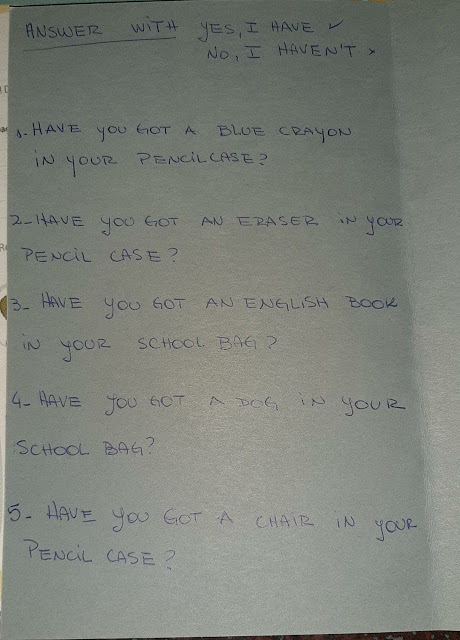 ANSWER WITH YES, I HAVE ✓
NO, I HAVEN'T ×
1-HAVE YOU GOT A BLUE CRAYON
IN YOUR PENCILCASE?
2-HAVE YOU GOT AN ERASER IN YOUR
PENCIL CASE?
3- HAVE YOU GOT AN ENGLISH BOOK
IN YOUR SCHOOL BAG?
4- HAVE YOU GOT A DOG IN YOUR
SCHOOL BAG?
5- HAVE YOU GOT A CHAIR IN YOUR
PENCIL CASE?